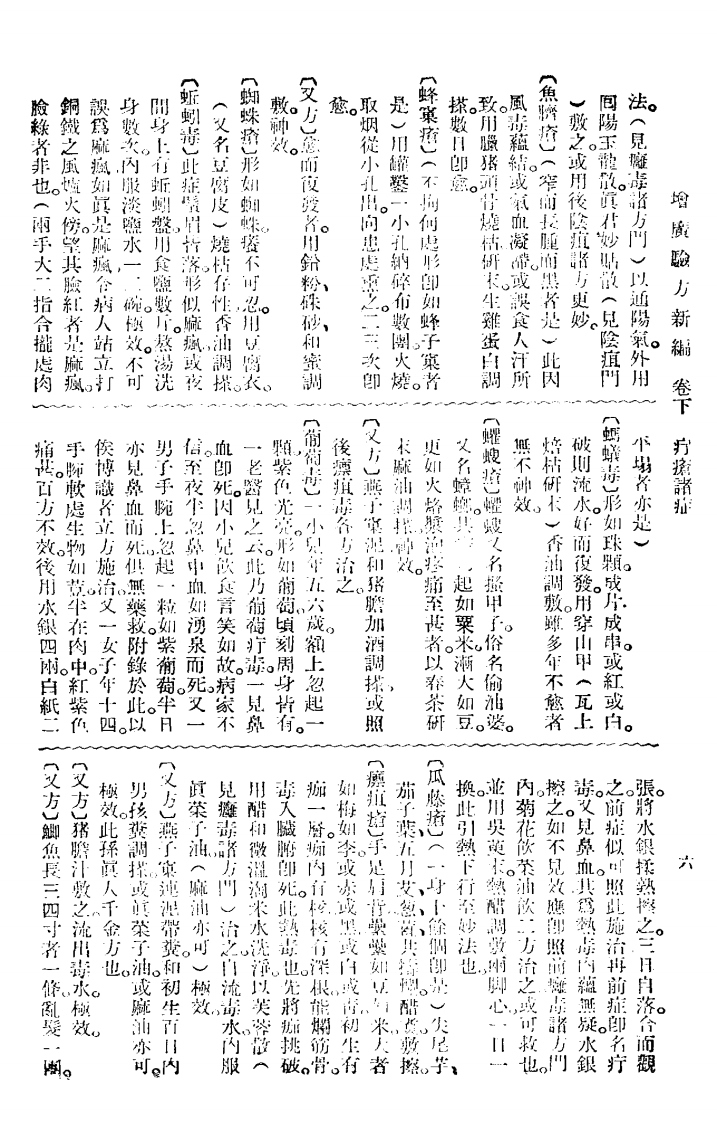 增廣驗方新編　卷下　疔瘡諸症　六
法。（見癰毒諸方門）以通陽氣。外用
囘陽玉龍散。眞君妙貼散（見陰疽門
）敷之。或用後陰疽諸方更妙。
〔魚臍瘡〕（窄而長腫而黑者是）此因
風毒蘊結。或氣血凝滯。或誤食人汗所
致。用臘猪頭骨燒枯研末。生雞蛋白調
搽。數日卽愈。
〔蜂窠瘡〕（不拘何處形卽如蜂子窠者
是）用罐鑿一小孔。納碎布數團火燒。
取烟從小孔出。向患處熏之。二三次卽
愈。
〔又方〕愈而復發者。用鉛粉、硃砂、和蜜調
敷。神效。
〔蜘蛛瘡〕形如蜘蛛。癢不可忍。用豆腐衣。
（又名豆腐皮）燒枯存性。香油調搽。
〔蚯蚓毒〕此症鬚眉皆落。形似麻瘋。或夜
間身上有蚯蚓盤。用食鹽數斤。熬湯洗
身數次。內服淡鹽水一二碗。極效。不可
誤爲麻瘋。如眞是麻瘋。令病人站立打
銅鐵之風爐火傍。望其臉紅者是麻瘋。
臉綠者非也。（兩手大二指合攏處肉
平塌者亦是）
〔螞蟻毒〕形如珠顆。成片成串。或紅或白。
破則流水。好而復發。用穿山甲（瓦上
焙枯研末）香油調敷。雖多年不愈者。
無不神效。
〔蠷螋瘡〕蠷螋又名搔甲子。俗名偷油婆。
又名蟑螂。其 起如粟米。漸大如豆。
更如火烙漿泡。疼痛至甚者。以春茶研
末。麻油調搽。神效。
〔又方〕燕子窠泥。和猪膽加酒調搽。或照
後癩疽毒各方治之。
〔葡萄毒〕一小兒年五六歲。額上忽起一
顆紫色光亮。形如葡萄。頃刻周身皆有。
一老醫見之云。此乃葡萄疔毒。一見鼻
血卽死。因小兒飮食言笑如故。病家不
信。至夜半忽鼻中血如湧泉而死。又一
男子手腕上忽起一粒如紫葡萄。半日
亦見鼻血而死。俱無藥救。附錄於此。以
俟博識者立方施治。又一女子年十四。
手腕軟處生物如荳。半在肉中。紅紫色
痛甚。百方不效。後用水銀四兩。白紙二
張。將水銀揉熱擦之。三日自落。合而觀
之。前症似可照此施治。再前症卽名疔
毒。又見鼻血。其爲熱毒內蘊無疑。水銀
擦之如不見效。應卽照前癰毒諸方門
內菊花飮。菜油飮二方治之。或可救也。
並用吳萸末。熱醋調敷兩脚心。一日一
換。此引熱下行至妙法也。
〔瓜藤瘡〕（一身十餘個卽是）尖尾芋、
茄子葉、五月艾、葱薑、共搗爛。醋煮敷擦。
〔癩疽瘡〕手足肩背纍纍如豆如米。大者
如梅如李。或赤或黑。或白或靑。初生有
痂一層。痂內有核。核有深根。能爛筋骨。
毒入臟腑卽死。此熱毒也。先將痂挑破。
用醋和微溫淘米水洗淨。以芙蓉散（
見癰毒諸方門）治之。自流毒水。內服
眞菜子油（麻油亦可）極效。
〔又方〕燕子窠連泥帶糞。和初生百日內
男孩糞調搽。或眞菜子油。或麻油亦可。
極效。此孫眞人千金方也。
〔又方〕猪膽汁敷之。流出毒水。極效。
〔又方〕鯽魚長三四寸者一條。亂髮一團。